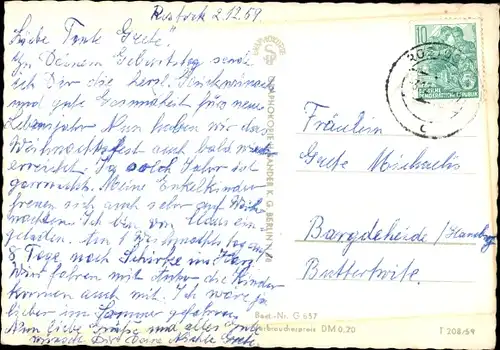 Rostock 2.12.59
Liebe Tante Grete!
Zu Deinem Geburtstag sende
ich Dir die herzl. Glückwünsche
und gute Gesundheit für's neue
Lebensjahr. Nun haben wir das
Weihnachtsfest auch bald wieder
erreicht. So ein Jahr ist
gar nichts. Meine Enkelkinder
freuen sich auch sehr auf Weih-
nachten. Ich bin von Claus ein-
geladen. Am 1. Weihnachtstag auf
8 Tage nach Schirke im Harz
Wir fahren mit Auto die Kinder
kommen auch mit. Ich wäre ja
lieber im Sommer gefahren.
Nun liebe Grüße und alles Gute
wünscht Dir Deine Nichte Grete.
Fräulein
Grete Michaelis
Bargteheide/Hamburg
Buttertwiete.
10
DEUTSCHE
DEMOKRATISCHE REPUBLIK
ROSTOCK
KG BERLIN
Best.-Nr. G 657
Verbraucherpreis DM 0,20
T 208/59